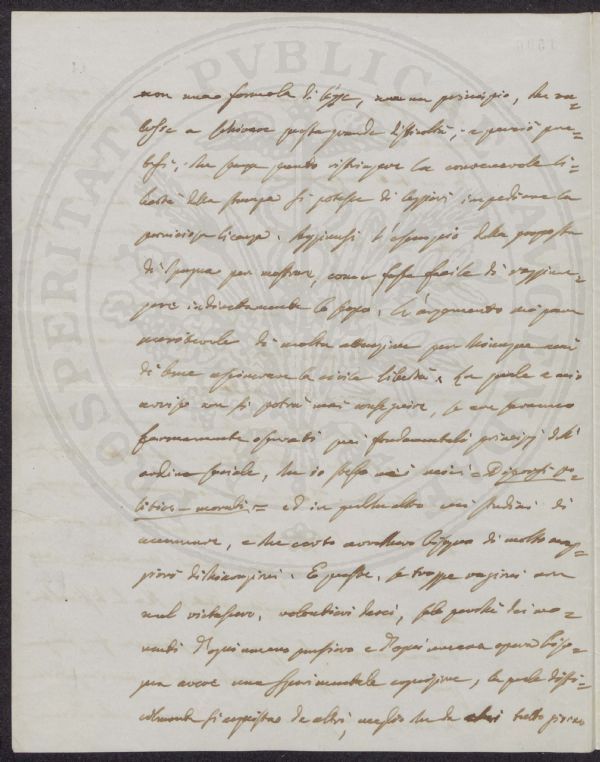 non una formola di legge, ma un principio, che va-
lesse a schivare questa grande difficoltà; e perciò pre-
tesi, che senza punto ristringere la convenevole li-
bertà della stampa si potesse di leggieri impedirne la
perniciosa licenza. Aggiunsi l'esempio della proposta
di Spagna per mostrare, come fosse facile di raggiun-
gere indirettamente lo scopo. L'argomento mi pare
meritevole di molta attenzione per chiunque ami
di bene assicurare la civile libertà. La quale a mio
avviso non si potrà mai conseguire, se non saranno
fermamente osservati quei fondamentali principj dell'
ordine sociale, che io stesso nei miei = Discorsi po-
litici-morali = ed in qualche altro mi studiai di
accennare, e che certo avrebbero bisogno di molto mag-
giori dichiarazioni. E queste, se troppe ragioni non
mel vietassero, volentieri darei, solo perchè dei mo-
venti d'ogni umano pensiero e d'ogni umana opera biso-
gna avere una sperimentale cognizione, la quale diffi-
cilmente si acquista da altri, meglio che da tutto
PVBLICAE